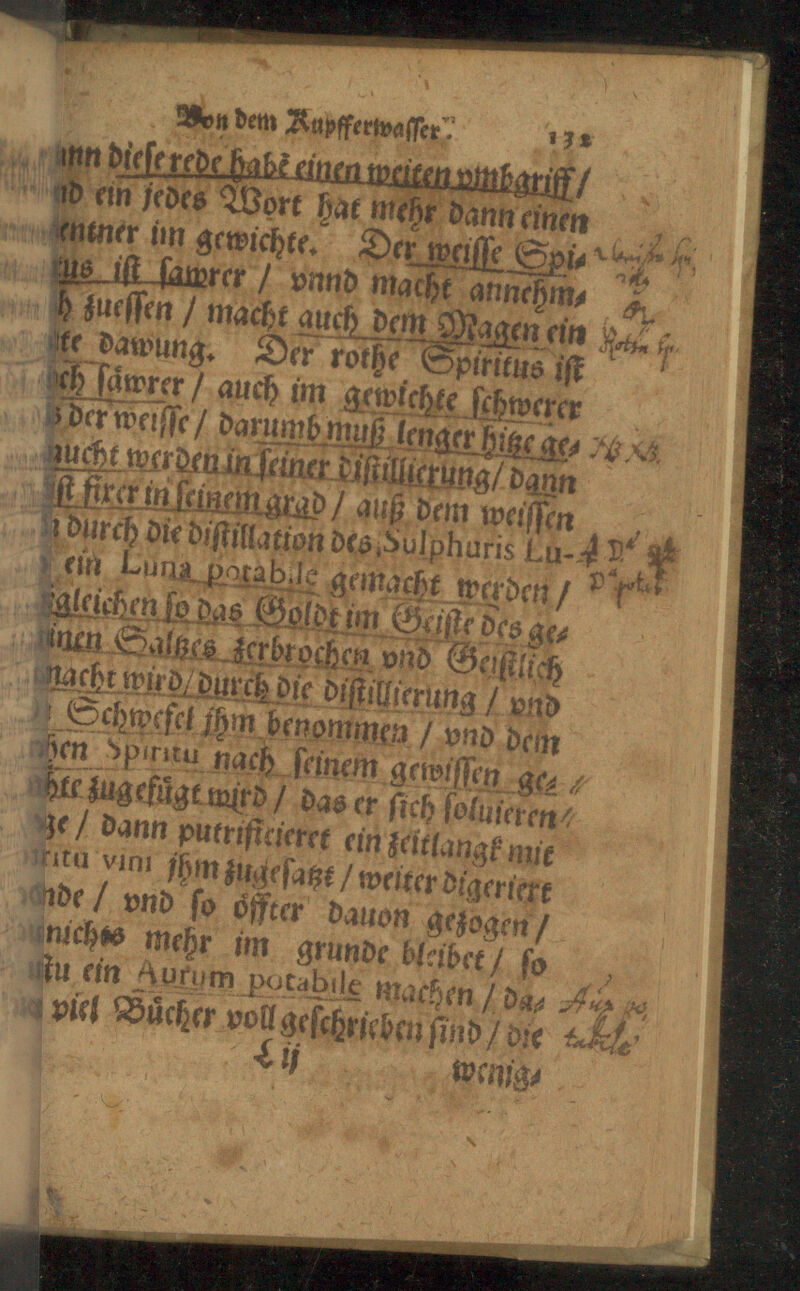 Von dem Kupfferwasser. 132
ann diese rede habẽ einen weiten vmbgriff /
nd ein jedes Wort hat mehr dann einen
entner im gewichte. Der weisse Spi⸗
tus ist sawrer / vnnd macht annehm⸗
h zuessen / macht auch dem Magen ein
te dawung. Der rothe Spiritus ist
ch såwrer / auch im gewichte schwerer
ß der weisse / darumb muß lenger hitze ge⸗
aucht werden in seiner distillierung / dann
ist fixer in seinem grad / auß dem weissen
n durch die distillation des Sulphuris Lu-
ein Luna potabile gemacht werden /
gleichen so das Goldt im Geiste des ge⸗
inen Saltzes zerbrochen vnd Geistlich
macht wird / durch die distillierung / vnd
Schwefel jhm benommen / vnd dem
hen Spiritu nach seinem gewissen ge⸗
hte zugefůgt wird / das er sich soluieren
ge / dann putrificieret ein zeitlangk mit
iritu vini jhm zugesatzt / weiter digeriert
nde / vnd so ôffter dauon gezogen /
nichts mehr im grunde bleibet / so
tu ein Aurum potabile machen / da⸗
n viel Bůcher voll geschrieben sind / die
wenig⸗